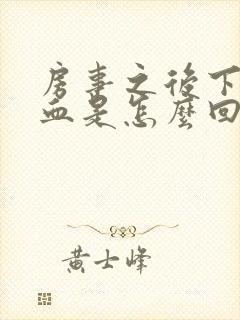 房事之後下
血是怎麼回
黃士峰